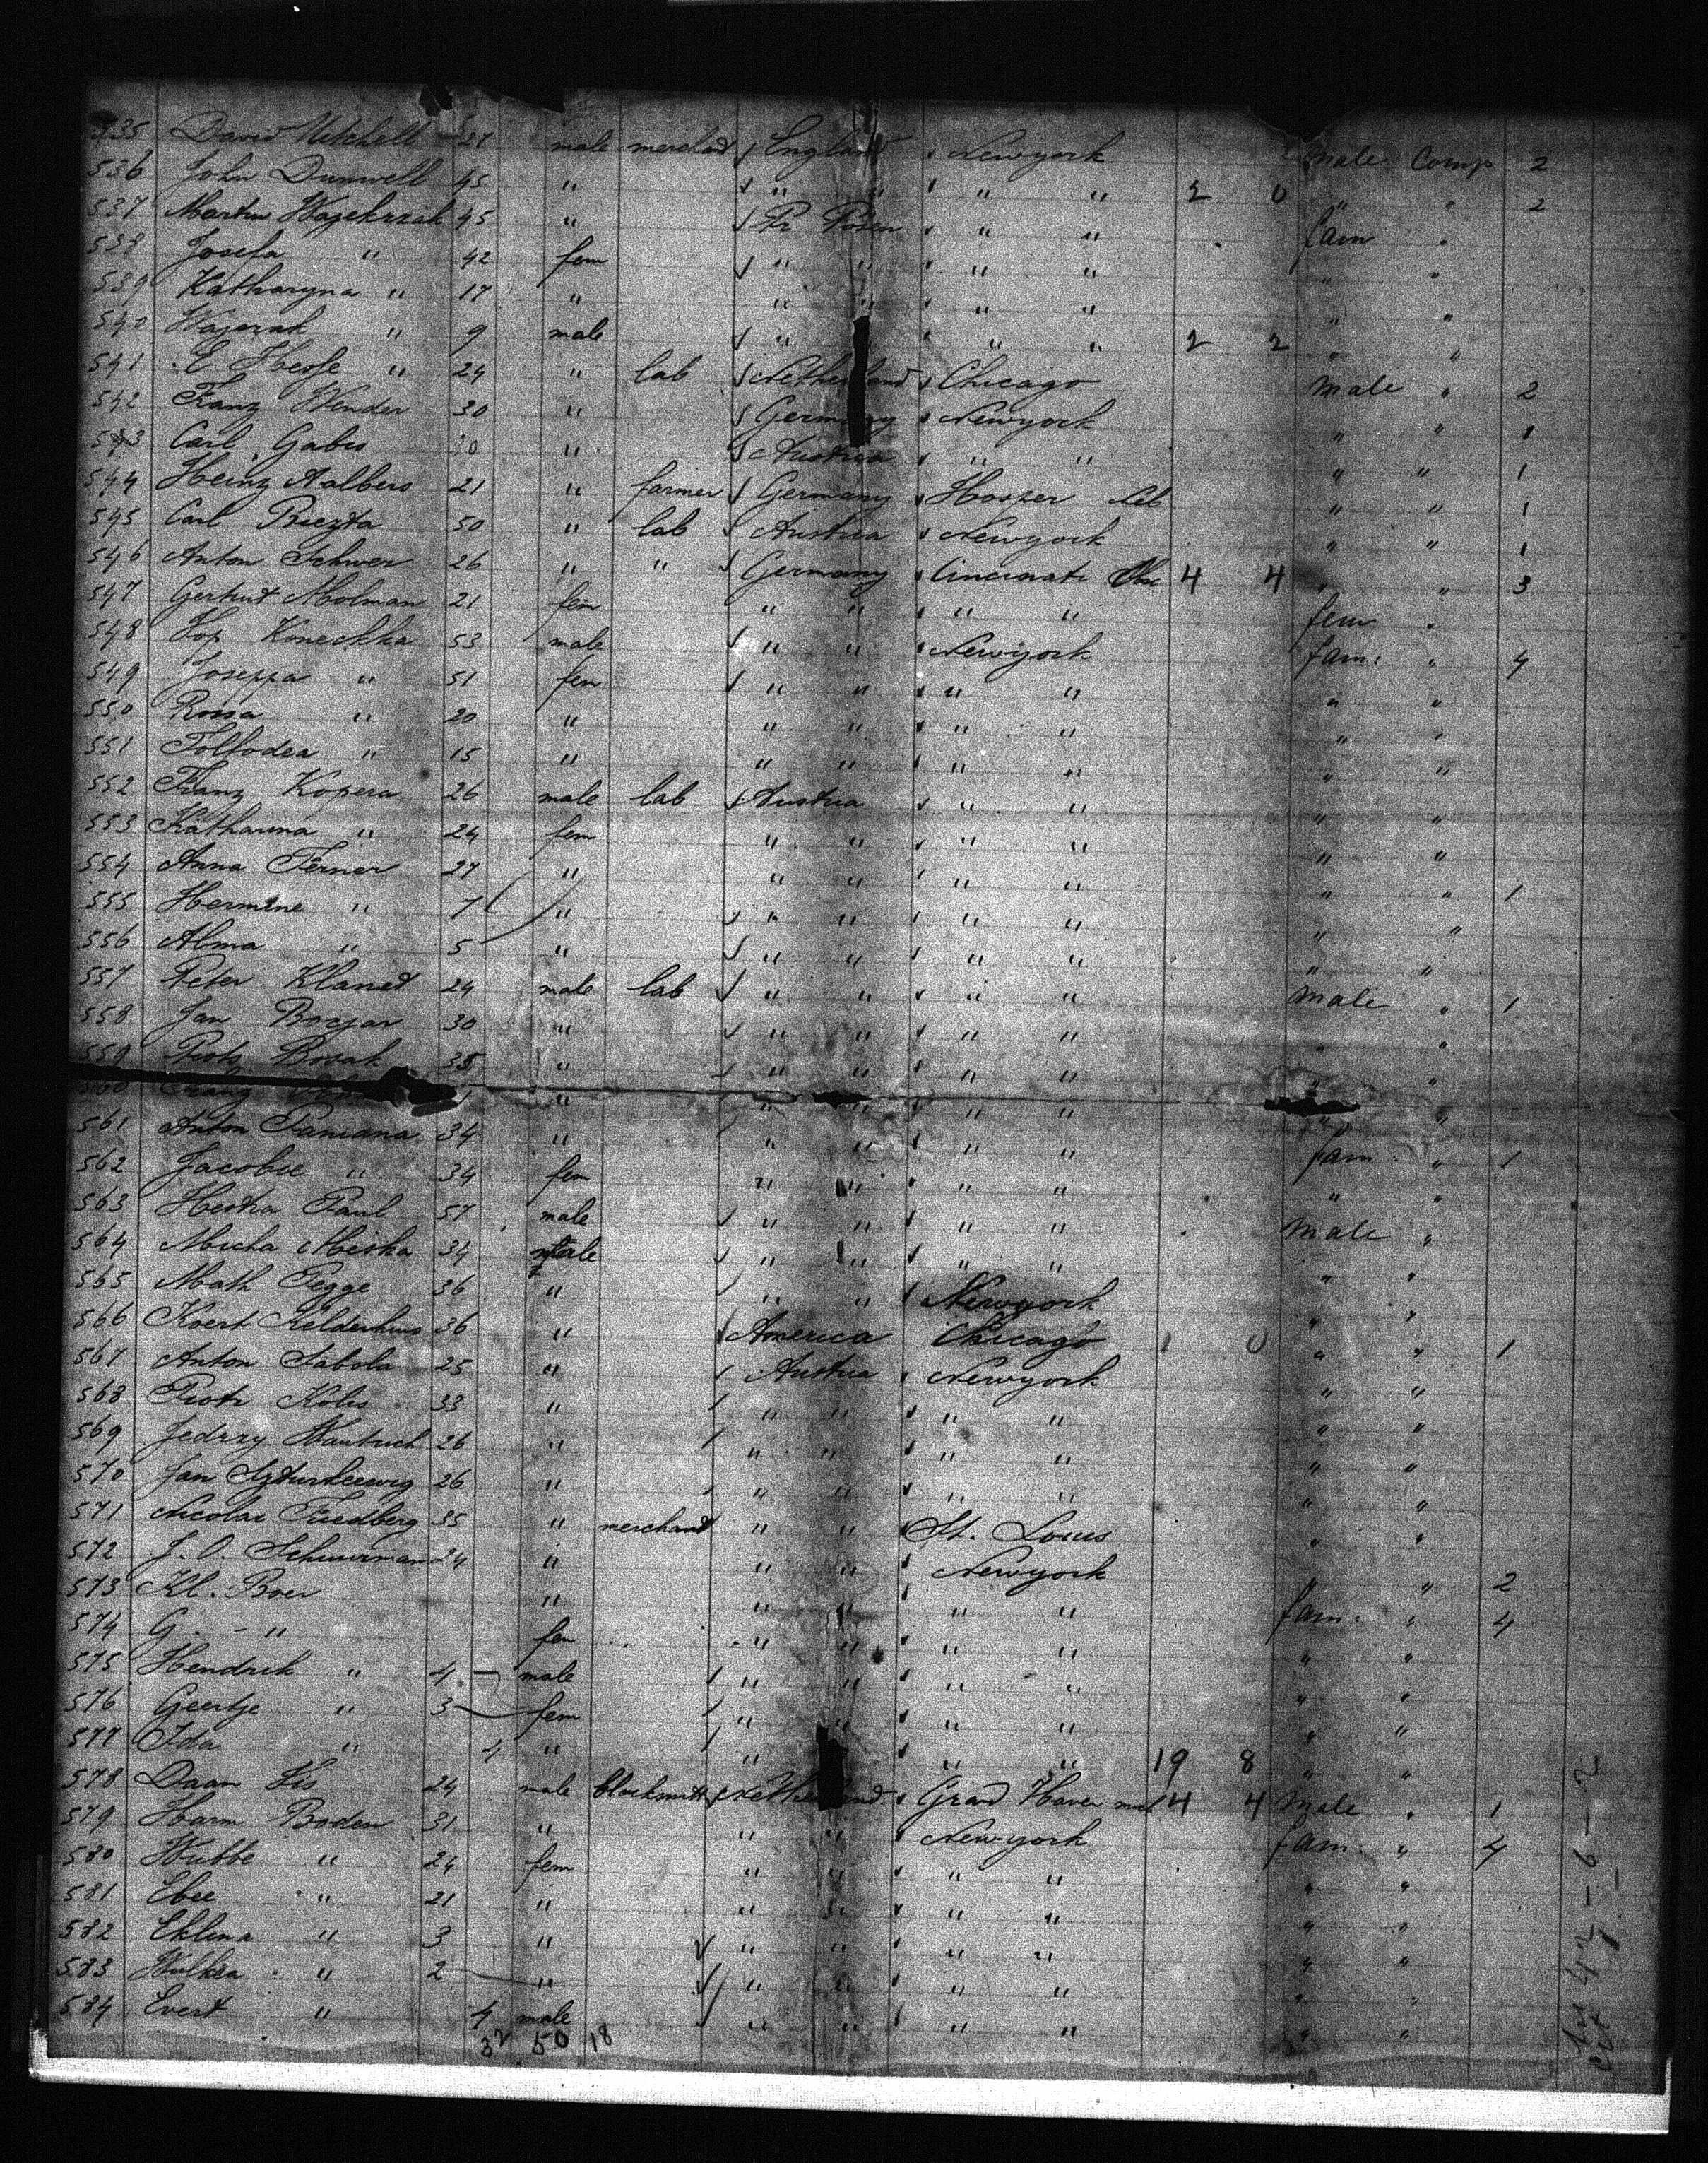 535 David Mitchell 27 male merchand England Newyork male Comp 2
536 John Dunwell 45 " " " " " 2 0 " " 2
537 Martin Wajekrzak 45 " Pr Posen " " fam "
538 Josefa " 42 fem " " " " " "
539 Katharyna " 17 " " " " " " "
540 Wajerak " 9 male " " " " 2 2 " "
541 E Hesse " 24 " lab Netherland Chicago male " 2
542 Franz Wender 30 " Germany Newyork " " 1
543 Carl Gabis 30 " Austria " " " " 1
544 Heinz Aalbers 21 " farmer Germany Hosper Neb " " 1
545 Carl Biezta 50 " lab Austria Newyork " " 1
546 Anton Schwer 26 " " Germany Cincinati 4 4 " " 3
547 Gertrut Molman 21 fem " " " " fem "
548 Koneckka 53 male " " Newyork fam: " 4
549 Joseppa " 51 fem " " " " " "
550 Rosa " 20 " " " " " " "
551 " 15 " " " " " " "
552 Franz Kopera 26 male lab Austria " " " "
553 Katharina " 24 fem " " " " " "
554 Anna Ferner 27 " " " " " " " 1
555 Hermine " 7 " " " " " " "
556 Alma " 5 " " " " " " "
557 Peter Klamet 24 male lab " " " " male " 1
558 Jan Bocjar 30 " " " " " " "
559 Piots Bosak 35 " " " " " " "
560 " " " " " " "
561 Anton Paniana 34 " " " " " fam " 1
562 Jacobie " 34 fem " " " " " "
563 Hestra Paul 57 male " " " " male "
564 Micha Miska 34 male " " " " " "
565 Math Pegge 36 " " " Newyork " "
566 Koert Kelderhuis 36 " America Chicago 1 0 " " 1
567 Anton Sabola 25 " Austria Newyork " "
568 Piotr Kolis 33 " " " " " " "
569 Jedrzy Wantuch 26 " " " " " " "
570 Jan 26 " " " " " " "
571 Nicolai Friedberg 35 " merchant " " St. Louis " "
572 J. O. Schuurman 24 " " " Newyork " " 2
573 Kl. Boer " " " " " fam. " 4
574 G. - " fem " " " " " "
575 Hendrik " 4 male " " " " " "
576 Geertje " 3 fem " " " " " "
577 Ida " 4 " " " " " 19 8 " "
578 Daan Vis 24 male blacksmith Netherland Grand Haven mich 4 4 male " 1
579 Harm Boden 31 " " " Newyork fam: " 4
580 Wubbe " 24 fem " " " " " "
581 Ebee " 21 " " " " " " "
582 Eklina " 3 " " " " " " "
583 " 2 " " " " " " "
584 Evert " 4 male " " " " " "
32 50 18